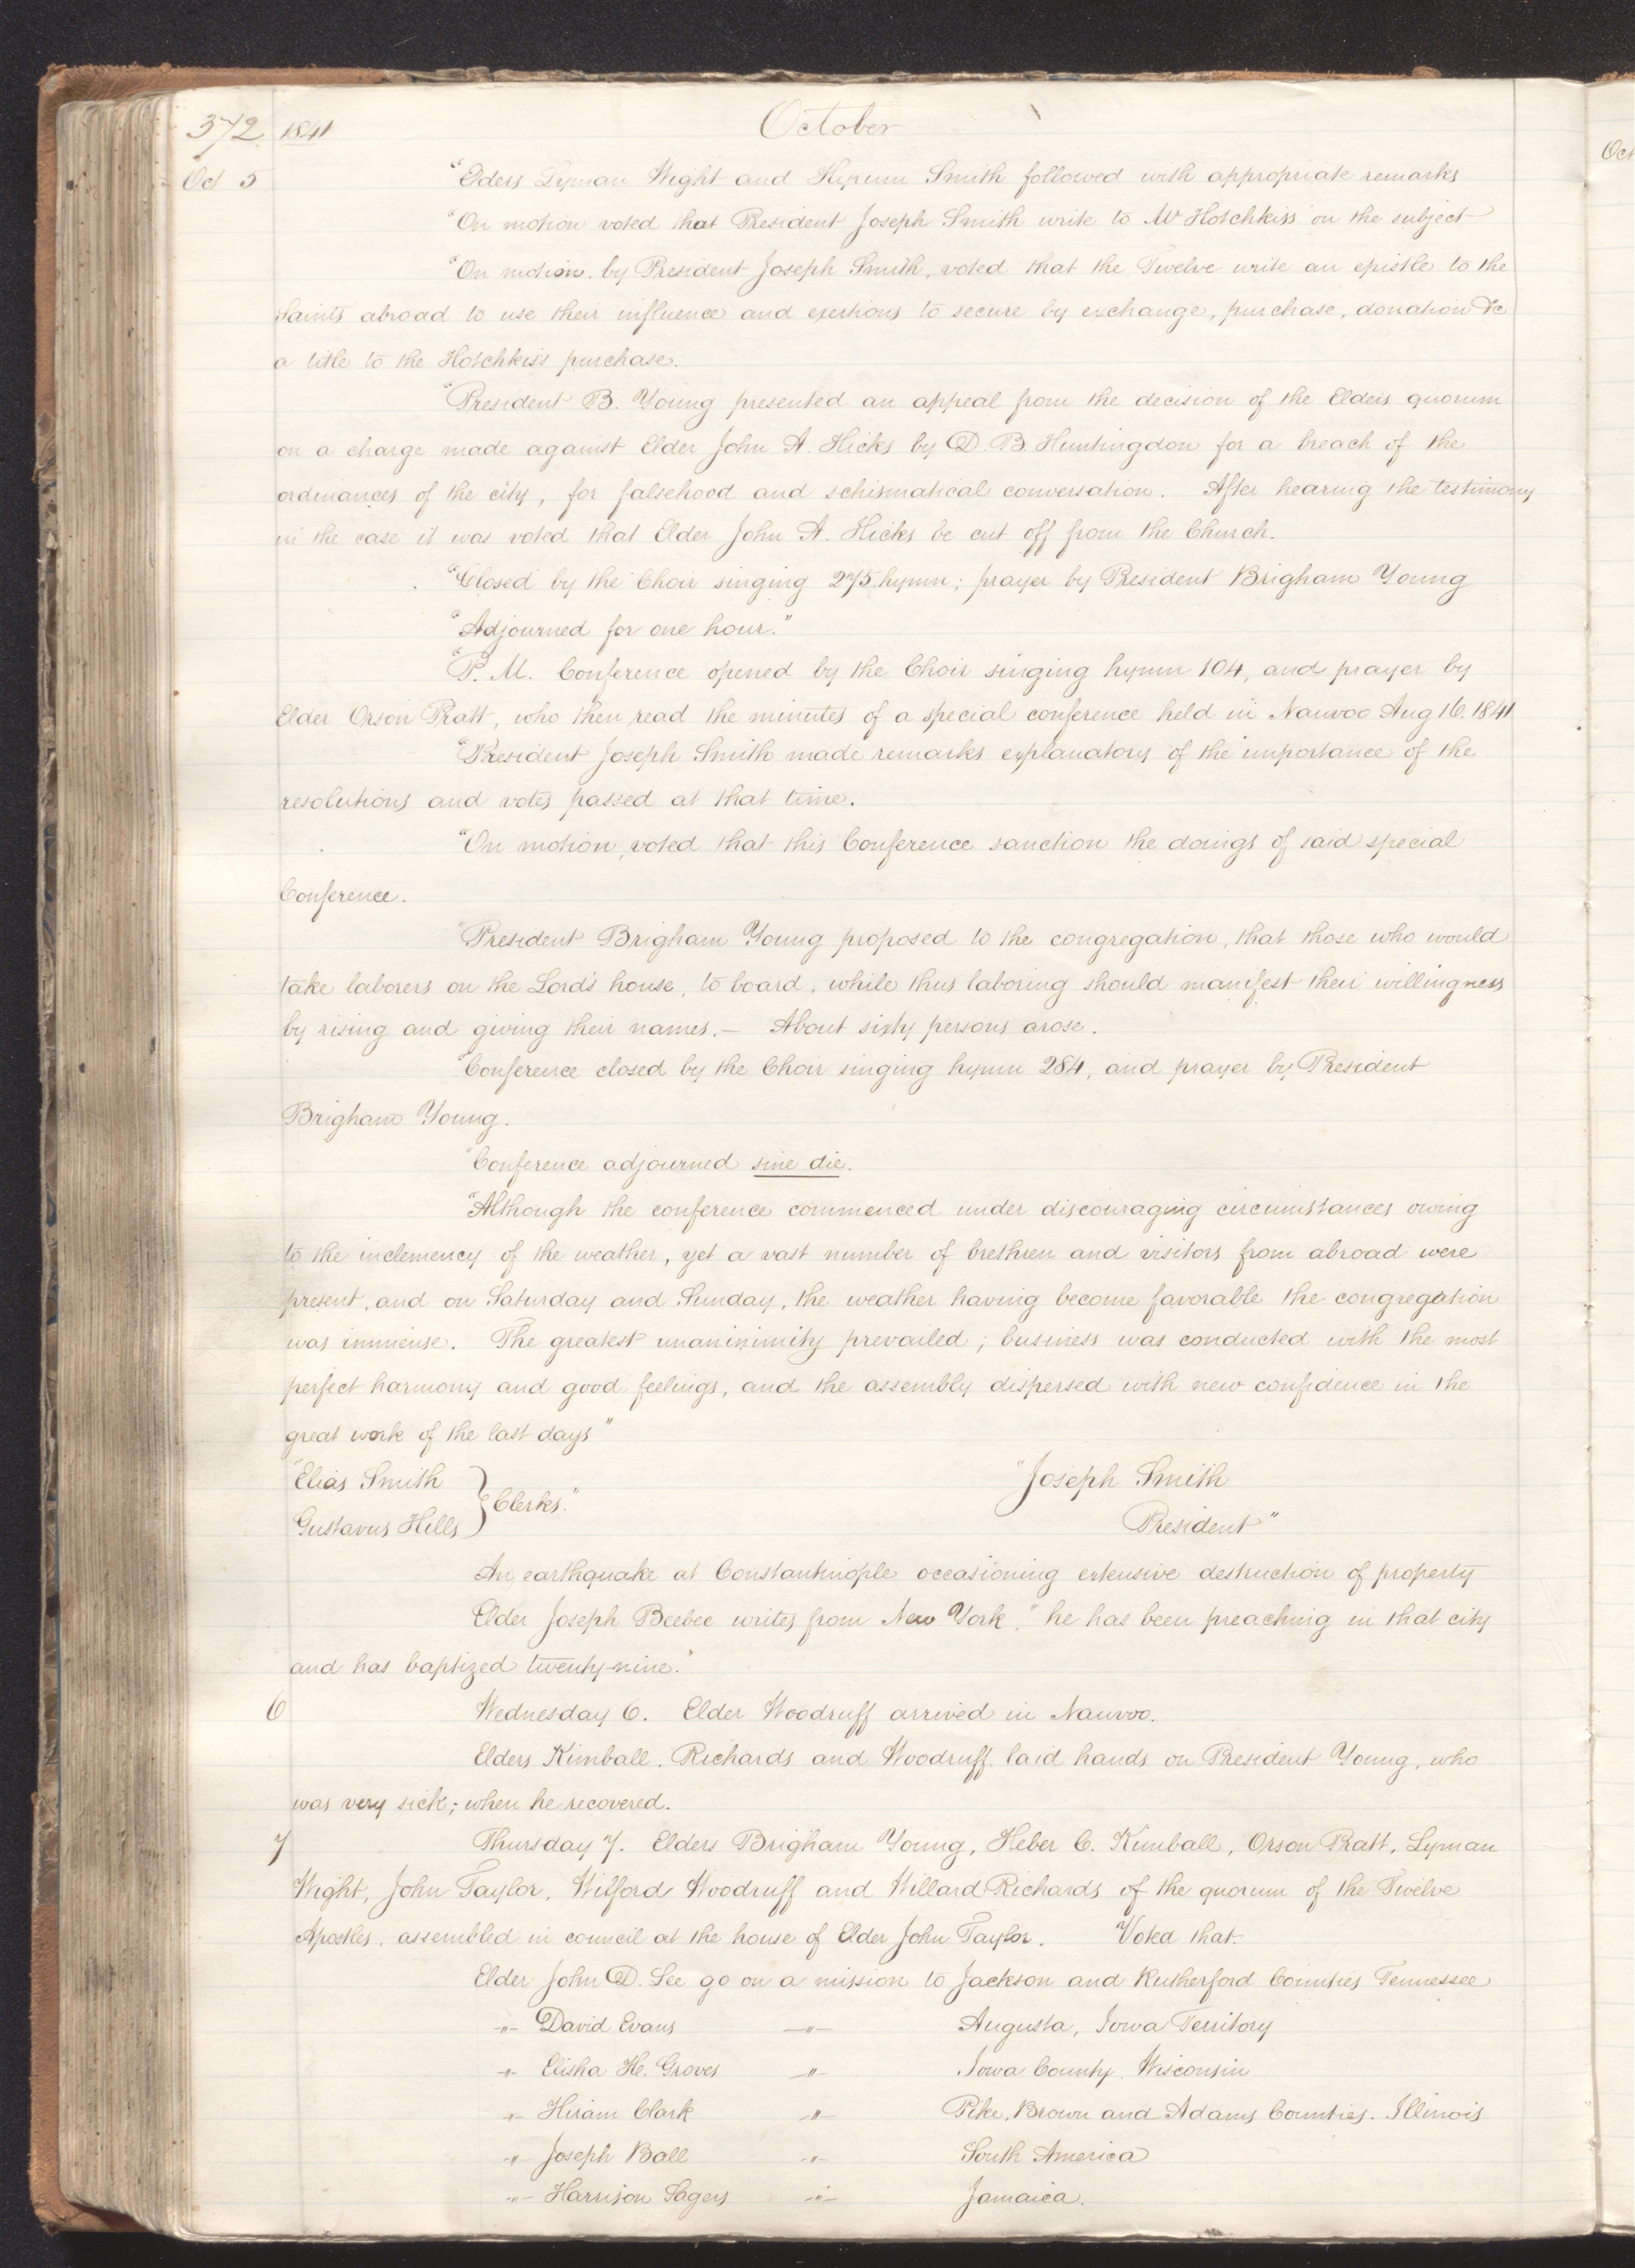 372 1841 October
Oct 5 "Elders Lyman Wight and Hyrum Smith followed with appropriate remarks
"On motion voted that President Joseph Smith write to Mr Hotchkiss on the subject
"On motion. by President Joseph Smith, voted that the Twelve write an epistle to the
Saints abroad to use their influence and exertions to secure by exchange, purchase, donation &c
a title to the Hotchkiss purchase.
"President B. Young presented an appeal from the decision of the Elders quorum
on a charge made against Elder John A. Hicks by D. B. Huntingdon for a breach of the
ordinances of the city, for falsehood and schismatical conversation. After hearing the testimony
in the case it was voted that Elder John A. Hicks be cut off from the Church.
"Closed by the Choir singing 275 hymn; prayer by President Brigham Young
"Adjourned for one hour."
"P. M. Conference opened by the Choir singing hymn 104, and prayer by
Elder Orson Pratt, who then read the minutes of a special conference held in Nauvoo Aug 16. 1841
"President Joseph Smith made remarks explanatory of the importance of the
resolutions and votes passed at that time.
"On motion, voted that this Conference sanction the doings of said special
Conference.
"President Brigham Young proposed to the congregation, that those who would
take laborers on the Lord's house, to board, while thus laboring should manifest their willingness
by rising and giving their names. — About sixty persons arose.
"Conference closed by the Choir singing hymn 284, and prayer by President
Brigham Young.
"Conference adjourned sine die.
"Although the conference commenced under discouraging circumstances owing
to the inclemency of the weather, yet a vast number of brethren and visitors from abroad were
present, and on Saturday and Sunday, the weather having become favorable the congregation
was immense. The greatest unaninimity prevailed; business was conducted with the most
perfect harmony and good feelings, and the assembly dispersed with new confidence in the
great work of the last days"
"Elias Smith
Gustavus Hills } Clerks."
"Joseph Smith
President"
An earthquake at Constantinople occasioning extensive destruction of property
Elder Joseph Beebee writes from New York, "he has been preaching in that city
and has baptized twenty-nine."
6 Wednesday 6. Elder Woodruff arrived in Nauvoo.
Elders Kimball, Richards and Woodruff laid hands on President Young, who
was very sick; when he recovered.
7 Thursday 7. Elders Brigham Young, Heber C. Kimball, Orson Pratt, Lyman
Wight, John Taylor, Wilford Woodruff and Willard Richards of the quorum of the Twelve
Apostles, assembled in council at the house of Elder John Taylor. Voted that
Elder John D. Lee go on a mission to Jackson and Rutherford Counties Tennessee
-"- David Evans -"- Augusta, Iowa Territory
-"- Elisha H. Groves -"- Iowa County, Wisconsin
-"- Hiram Clark -"- Pike, Brown and Adams Counties. Illinois
-"- Joseph Ball -"- South America
-"- Harrison Sagers -"- Jamaica.
Oct